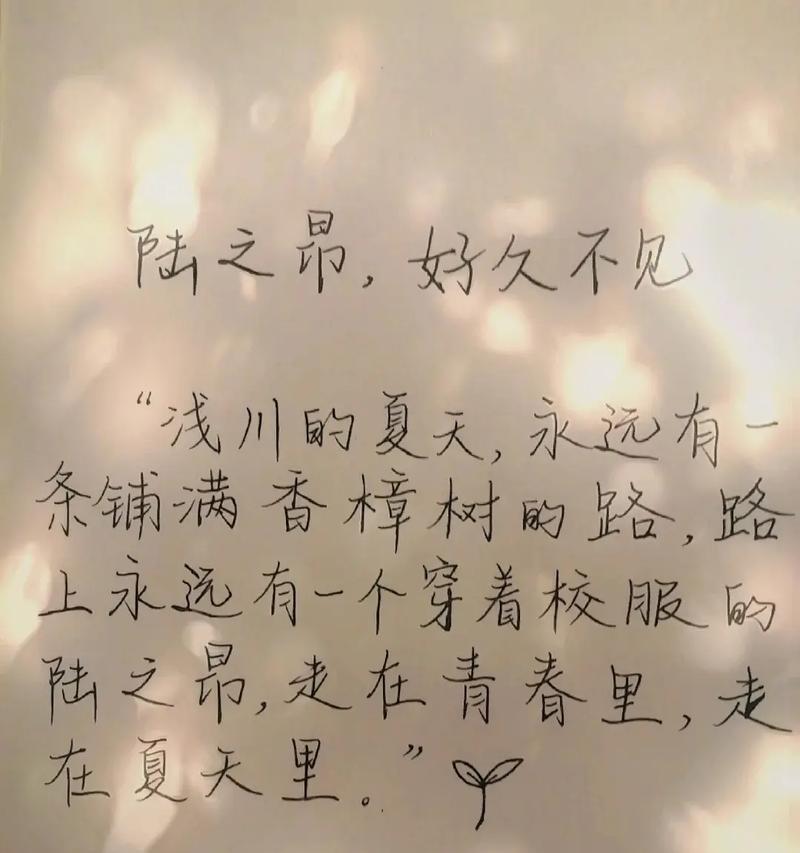 陆之昂，好久不见
“浅川的夏天，永远有一
条铺满香樟树的路，路
上永远有一个穿着校服的
陆之昂，走在青春里，走
在夏天里。”